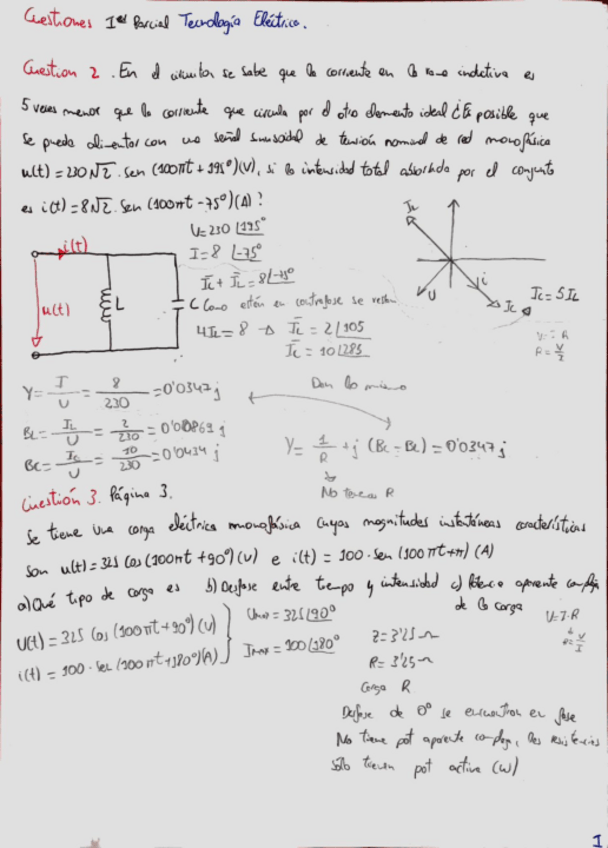 Cuestiones 1er Parcial Tecnología Eléctrica.
Cuestion 2. En el circuito se sabe que la corriente en la rama inductiva es
5 veces menor que la corriente que circula por el otro elemento ideal ¿Es posible que
se pueda alimentar con una señal sinusoidal de tensión normal de red monofásica
u(t) = 230√2 · sen (100πt + 195°)(V), si la intensidad total absorbida por el conjunto
es i(t) = 8√2 · sen (100πt - 75°)(A)?
i(t)
u(t)
L
C
U = 230 ∠195°
I = 8 ∠-75°
Ic + IL = 8∠-75°
Como están en contrafase se restan
4IL = 8 → IL = 2∠105
Ic = 10∠285
IL
U
i
Ic
Ic = 5IL
R = V/I
Y = I/U = 8/230 = 0'0347 j
BL = IL/U = 2/230 = 0'00869 j
Bc = Ic/U = 10/230 = 0'0434 j
Dan lo mismo
Y = 1/R + j (Bc - BL) = 0'0347 j
No tenemos R
Cuestión 3. Página 3.
Se tiene una carga eléctrica monofásica cuyas magnitudes instantáneas características
son u(t) = 325 cos (100πt + 90°)(V) e i(t) = 100 · sen (100πt + π) (A)
a) Qué tipo de carga es b) Desfase entre tiempo y intensidad c) Potencia aparente compleja
de la carga
U(t) = 325 cos (100πt + 90°)(V)
i(t) = 100 · sen (100πt + 180°)(A)
Umax = 325∠90°
Imax = 100∠180°
Z = 3'25 Ω
R = 3'25 Ω
Carga R
V = I · R
R = V/I
Desfase de 0° se encuentran en fase
No tiene pot aparente compleja, las resistencias
sólo tienen pot activa (W)
1